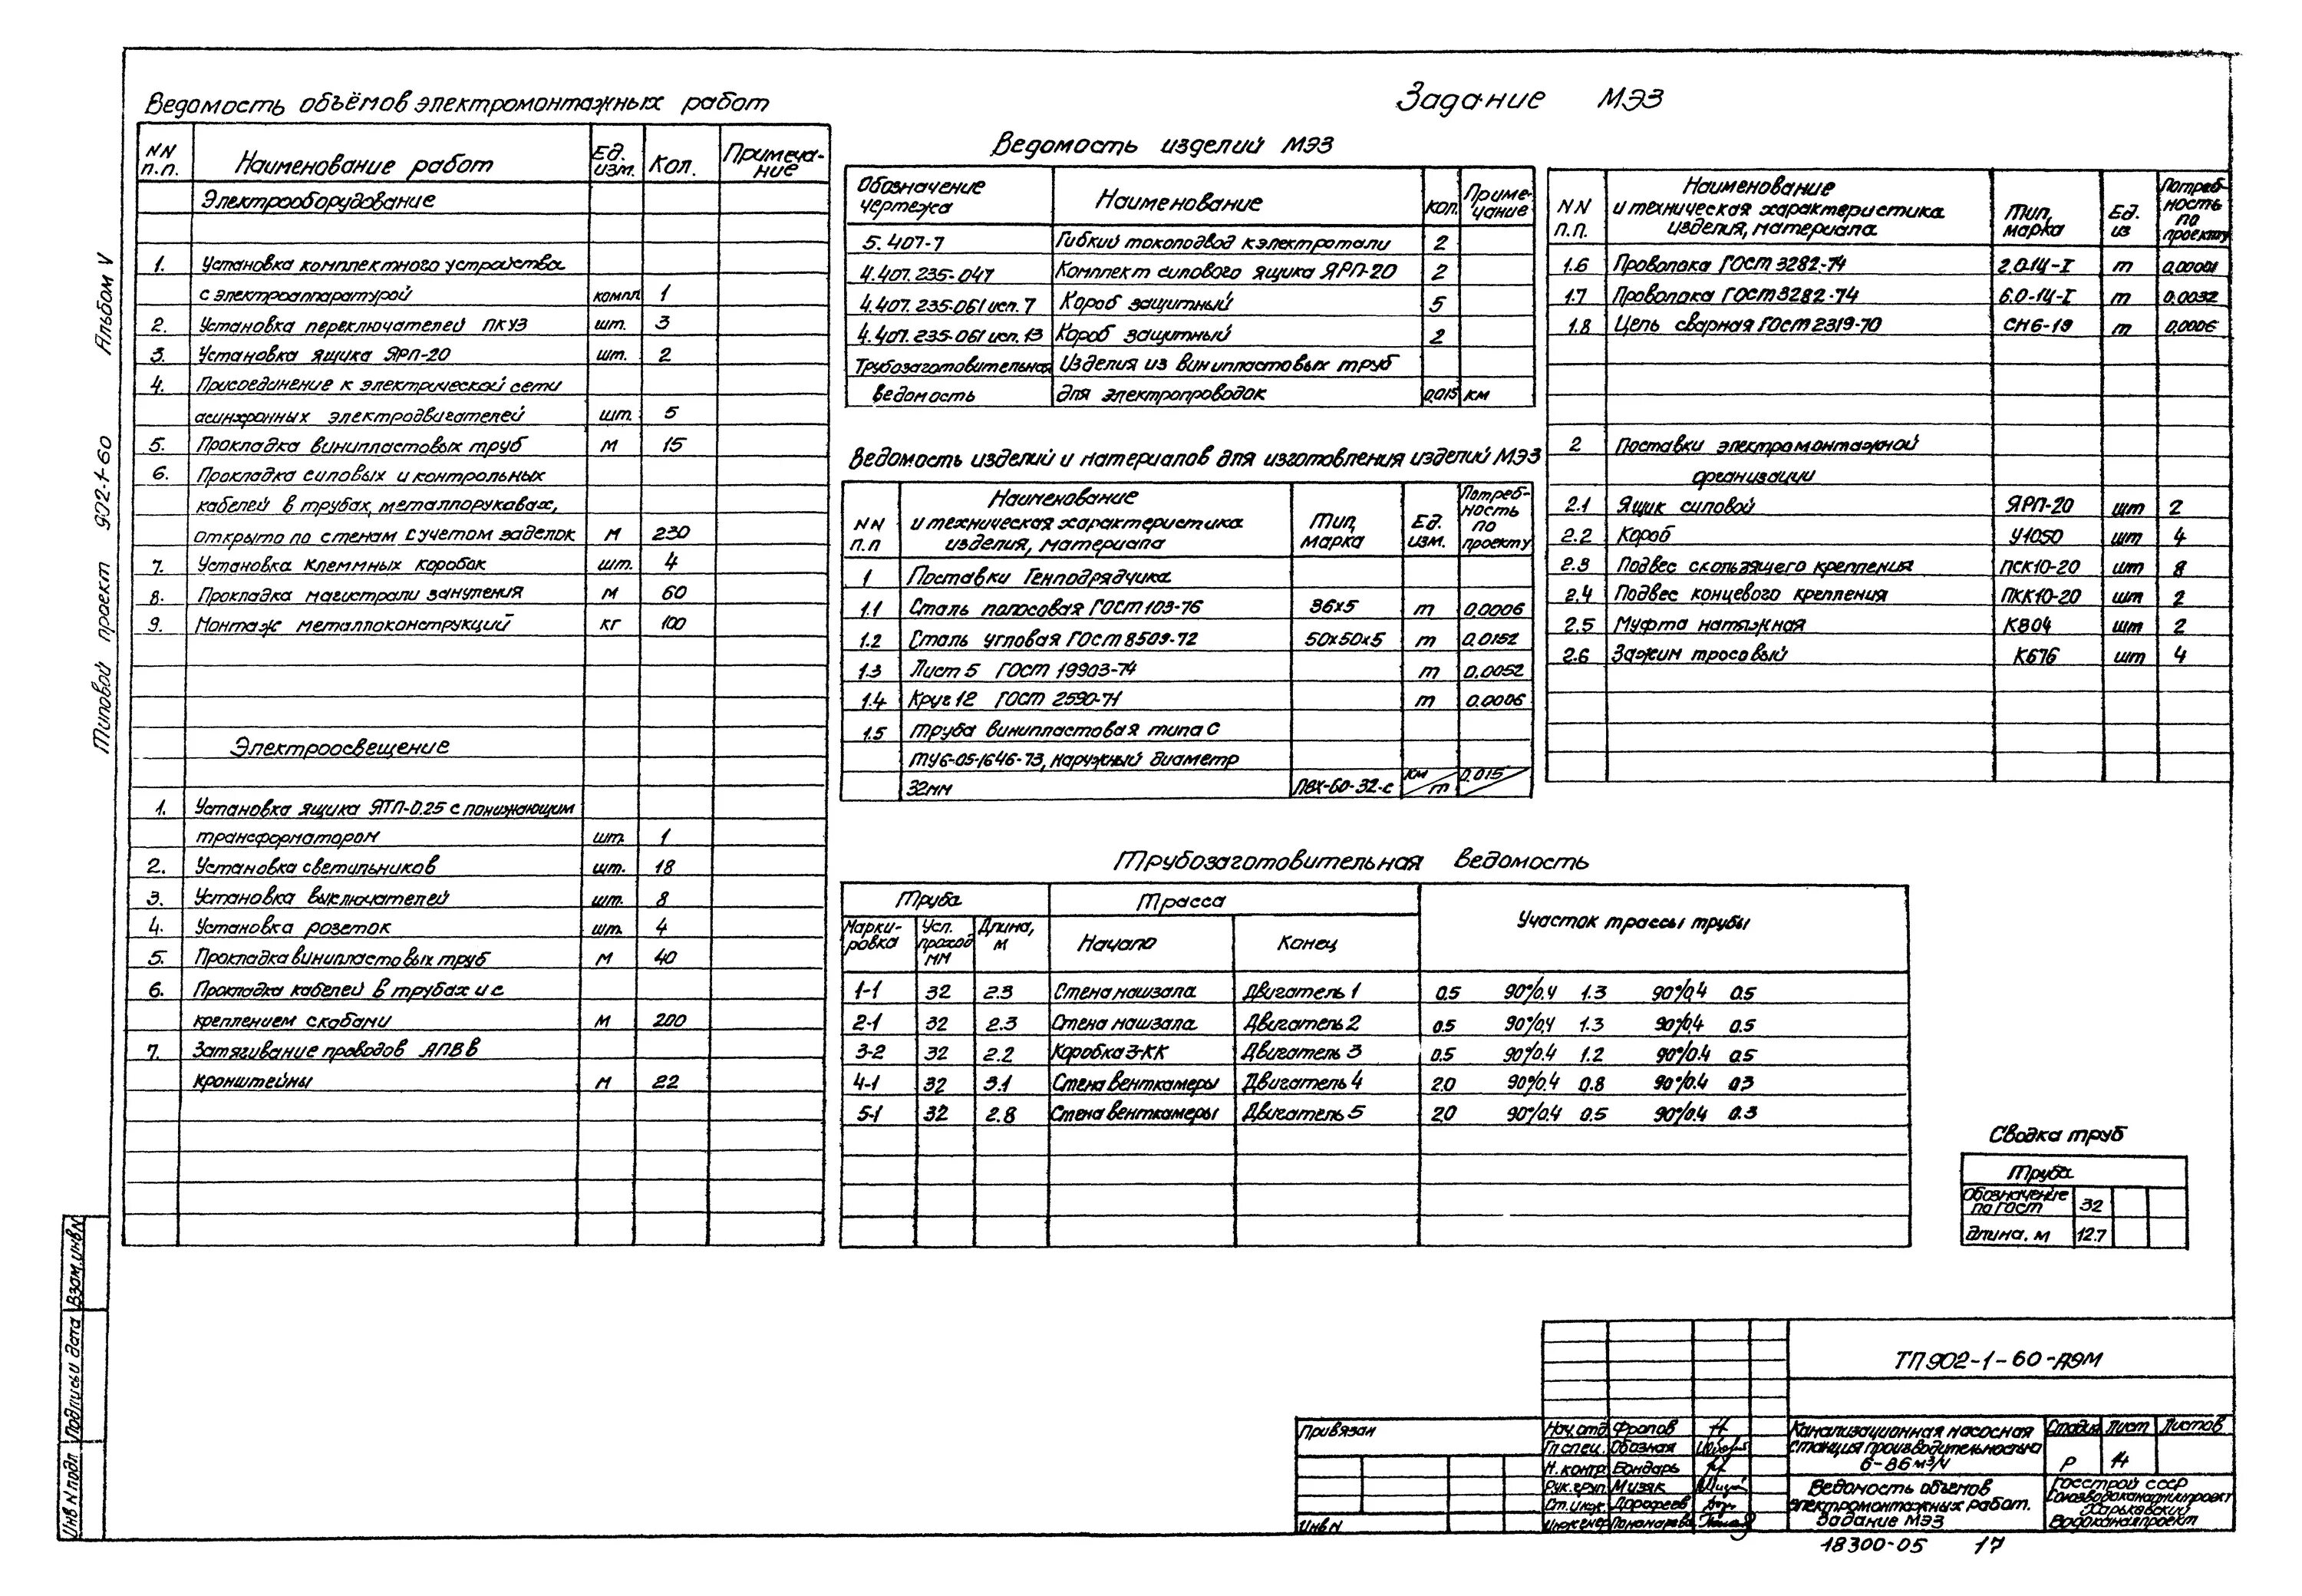 Типовой проект 902-1-60 Альбом V
Ведомость объёмов электромонтажных работ
NN п.п. Наименование работ Ед. изм. Кол. Примеча-ние
Электрооборудование
1. Установка комплектного устройства
с электроаппаратурой компл 1
2. Установка переключателей ПКУЗ шт. 3
3. Установка ящика ЯРП-20 шт. 2
4. Присоединение к электрической сети
асинхронных электродвигателей шт. 5
5. Прокладка винипластовых труб м 15
6. Прокладка силовых и контрольных
кабелей в трубах, металлорукавах,
открыто по стенам с учетом заделок м 230
7. Установка клеммных коробок шт. 4
8. Прокладка магистрали зануления м 60
9. Монтаж металлоконструкций кг 100
Электроосвещение
1. Установка ящика ЯТП-0.25 с понижающим
трансформатором шт. 1
2. Установка светильников шт. 18
3. Установка выключателей шт. 8
4. Установка розеток шт. 4
5. Прокладка винипластовых труб м 40
6. Прокладка кабелей в трубах и с
креплением скобами м 200
7. Затягивание проводов АПВ в
кронштейны м 22
Задание МЭЗ
Ведомость изделий МЭЗ
Обозначение чертежа Наименование Кол. Приме-чание
5.407-7 Гибкий токоподвод к электротали 2
4.407.235-047 Комплект силового ящика ЯРП-20 2
4.407.235-061 исп. 7 Короб защитный 5
4.407.235-061 исп. 13 Короб защитный 2
Трубозаготовительная Изделия из винипластовых труб
ведомость для электропроводок 0,015 км
Ведомость изделий и материалов для изготовления изделий МЭЗ
NN п.п Наименование и техническая характеристика изделия, материала Тип, марка Ед. изм. Потреб-ность по проекту
1 Поставки Генподрядчика
1.1 Сталь полосовая ГОСТ 103-76 36х5 т 0,0006
1.2 Сталь угловая ГОСТ 8509-72 50х50х5 т 0,0152
1.3 Лист 5 ГОСТ 19903-74 т 0,0052
1.4 Круг 12 ГОСТ 2590-71 т 0.0006
1.5 Труба винипластовая типа С
ТУ6-05-1646-73, наружный диаметр
32мм ПВХ-60-32-С км/т 0.015/
NN п.п. Наименование и техническая характеристика изделия, материала Тип, марка Ед. из Потреб-ность по проекту
1.6 Проволока ГОСТ 3282-74 2.0-14-I т 0,00001
1.7 Проволока ГОСТ 3282-74 6.0-14-I т 0,0032
1.8 Цепь сварная ГОСТ 2319-70 СН6-19 т 0,0006
2 Поставки электромонтажной
организации
2.1 Ящик силовой ЯРП-20 шт 2
2.2 Короб У1050 шт 4
2.3 Подвес скользящего крепления ПСК10-20 шт 8
2.4 Подвес концевого крепления ПКК10-20 шт 2
2.5 Муфта натяжная К804 шт 2
2.6 Зажим тросовый К676 шт 4
Трубозаготовительная ведомость
Труба Трасса Участок трассы трубы
Марки-ровка Усл. проход мм Длина, м Начало Конец
1-1 32 2.3 Стена машзала Двигатель 1 0.5 90°/0.4 1.3 90°/0.4 0.5
2-1 32 2.3 Стена машзала Двигатель 2 0.5 90°/0.4 1.3 90°/0.4 0.5
3-2 32 2.2 Коробка 3-КК Двигатель 3 0.5 90°/0.4 1.2 90°/0.4 0.5
4-1 32 3.1 Стена венткамеры Двигатель 4 2.0 90°/0.4 0.8 90°/0.4 0.3
5-1 32 2.8 Стена венткамеры Двигатель 5 2.0 90°/0.4 0.5 90°/0.4 0.3
Сводка труб
Труба
Обозначение по ГОСТ 32
Длина, м 12.7
ТП 902-1-60-АЭМ
Привязан
Инв N
Нач. отд Фролов
Гл спец. Обозная
Н. контр. Бондарь
Рук. груп. Мизяк
Ст. инж. Дорофеев
Инженер Пономарева
Канализационная насосная
станция производительностью
6-86 м³/ч
Стадия Лист Листов
Р 14
Ведомость объемов
электромонтажных работ.
Задание МЭЗ
Госстрой СССР
Союзводоканалниипроект
Харьковский
Водоканалпроект
18300-05 17
Инв N подл Подпись и дата Взам. инв N